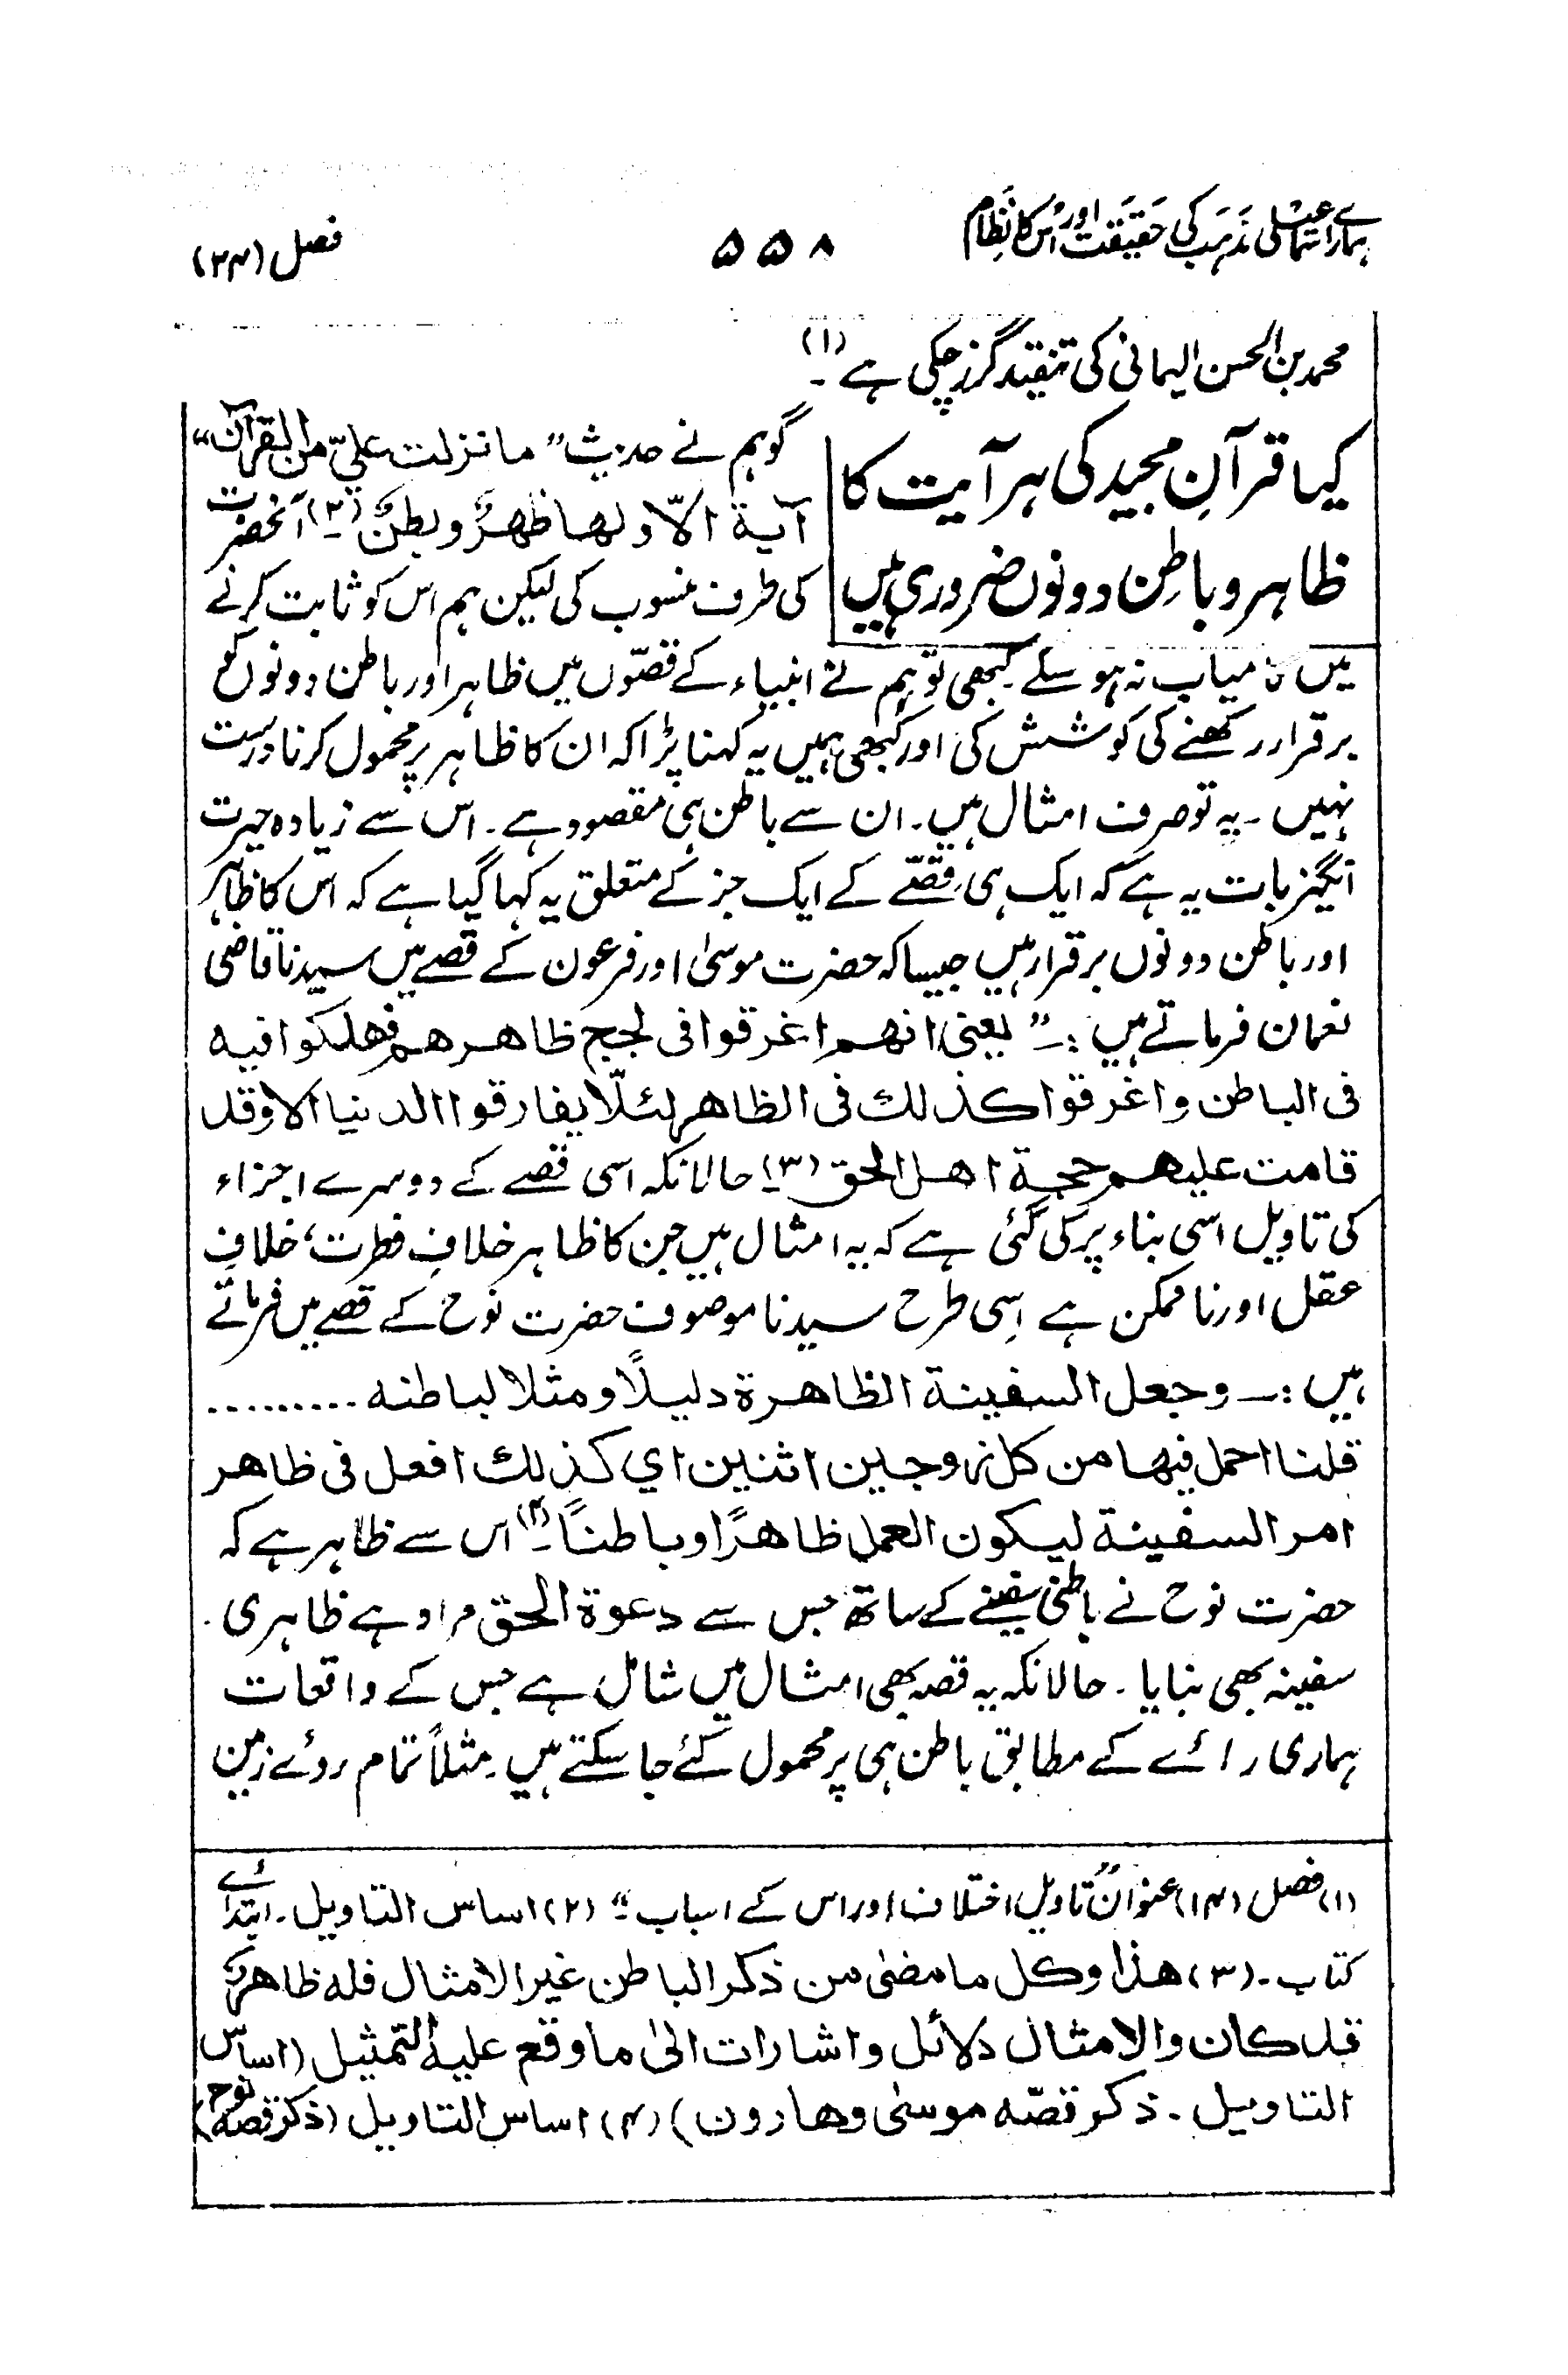 ہمارے اسماعیلی مذہب کی حقیقت اور اُس کا نظام
۵۵۸
فصل (۳۴)
محمد بن الحسن الیمانی کی تنقید گزر چکی ہے (۱)۔
کیا قرآنِ مجید کی ہر آیت کا
ظاہر و باطِن دونوں ضروری ہیں
گو ہم نے حدیث ”ما نزلت عليّ من القرآن“
آية الّا ولها ظهرٌ وبطنٌ (۲)۔ آنحضرت
کی طرف منسوب کی لیکن ہم اس کو ثابت کرنے
میں کامیاب نہ ہو سکے۔ کبھی تو ہم نے انبیاء کے قصّوں میں ظاہر اور باطن دونوں کو
برقرار رکھنے کی کوشش کی اور کبھی ہمیں یہ کہنا پڑا کہ ان کا ظاہر پر محمول کرنا درست
نہیں۔ یہ تو صرف امثال ہیں۔ ان سے باطن ہی مقصود ہے۔ اس سے زیادہ حیرت
انگیز بات یہ ہے کہ ایک ہی قصّے کے ایک جز کے متعلق یہ کہا گیا ہے کہ اس کا ظاہر
اور باطن دونوں برقرار ہیں جیسا کہ حضرت موسیٰ اور فرعون کے قصے میں سیدنا قاضی
نعمان فرماتے ہیں :۔ ” يعنى انهم اغرقوا فى لجج ظاهرهم فهلكوا فيه
فى الباطن واغرقوا كذلك فى الظاهر لئلّا يفارقوا الدنيا الا وقد
قامت عليهم حجة اهل الحق (۳)۔ حالانکہ اسی قصے کے دوسرے اجزاء
کی تاویل اسی بناء پر کی گئی ہے کہ یہ امثال ہیں جن کا ظاہر خلافِ فطرت، خلافِ
عقل اور ناممکن ہے اِسی طرح سیدنا موصوف حضرت نوح کے قصے میں فرماتے
ہیں :۔ وجعل السفينة الظاهرة دليلًا ومثلا لباطنه .........
قلنا احمل فيها من كل زوجين اثنين اي كذلك افعل فى ظاهر
امر السفينة ليكون العمل ظاهرًا وباطنًا۔(۴) اس سے ظاہر ہے کہ
حضرت نوح نے باطنی سفینے کے ساتھ جس سے دعوة الحق مراد ہے ظاہری
سفینہ بھی بنایا۔ حالانکہ یہ قصہ بھی امثال میں شامل ہے جس کے واقعات
ہماری رائے کے مطابق باطن ہی پر محمول کئے جا سکتے ہیں۔ مثلاً تمام روئے زمین
(۱) فصل (۱۴) عنوان ”تاویل اختلاف اور اس کے اسباب“۔ (۲) اساس التاویل۔ ابتدائے
کتاب۔ (۳) هذا وكل ما مضىٰ من ذكر الباطن غير الامثال فله ظاهرٌ
قد كان والامثال دلائل واشارات الىٰ ما وقع عليه التمثيل (اساس
التاويل۔ ذكر قصّه موسىٰ وهارون) (۴) اساس التاويل (ذكر قصّه نوح)